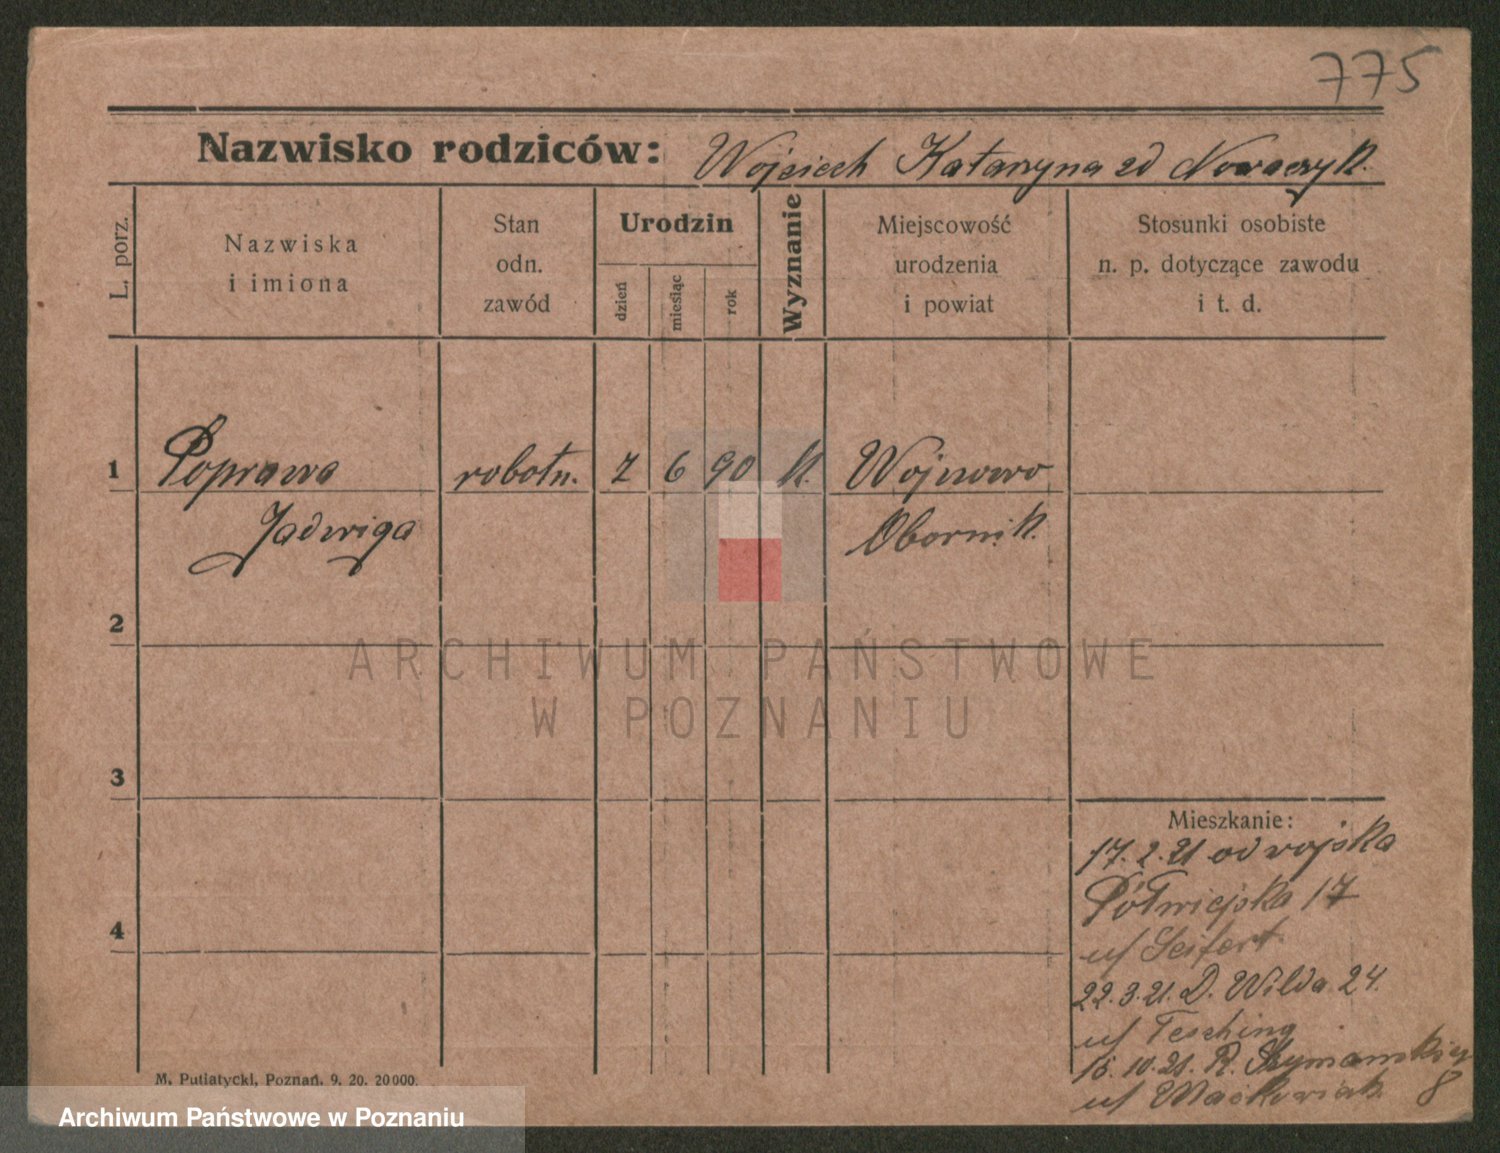 775
Nazwisko rodziców: Wojciech Katarzyna zd Nowaczyk.
L. porz.
Nazwiska
i imiona
Stan
odn.
zawód
Urodzin
dzień
miesiąc
rok
Wyznanie
Miejscowość
urodzenia
i powiat
Stosunki osobiste
n. p. dotyczące zawodu
i t. d.
1 Poprawa robotn. 7 6 90 k. Wojnowo
Jadwiga Obornik.
2
ARCHIWUM PAŃSTWOWE
W POZNANIU
3
Mieszkanie:
17.2.21 od wojska
Półwiejska 17
u/ Seifert
4
22.3.21. D. Wilda 24.
u/ Tesching
10.21. R. Szymańskiego
8
u/ Maćkowiak
M. Putiatycki, Poznań. 9. 20. 20000.
Archiwum Państwowe w Poznaniu